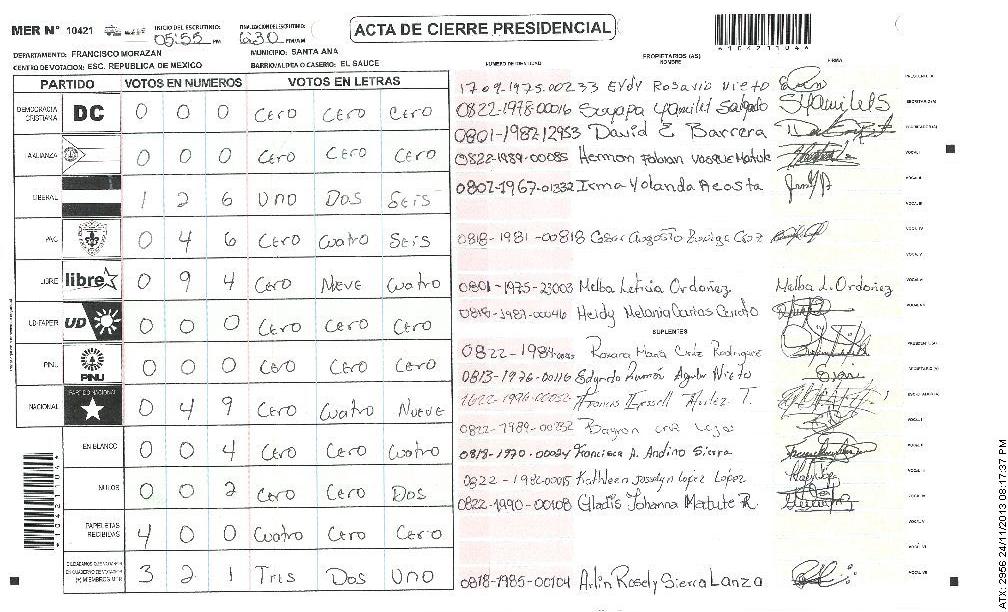 MER N° 10421 INICIO DEL ESCRUTINIO: 05:55 PM FINALIZACION DEL ESCRUTINIO: 6:30 PM/AM
ACTA DE CIERRE PRESIDENCIAL
*10421104*
DEPARTAMENTO: FRANCISCO MORAZAN MUNICIPIO: SANTA ANA
CENTRO DE VOTACION: ESC. REPUBLICA DE MEXICO BARRIO/ALDEA O CASERIO: EL SAUCE
PARTIDO VOTOS EN NUMEROS VOTOS EN LETRAS
DEMOCRACIA CRISTIANA DC 0 0 0 Cero Cero Cero
LA ALIANZA 0 0 0 Cero Cero Cero
LIBERAL 1 2 6 Uno Dos Seis
PAC 0 4 6 Cero Cuatro Seis
LIBRE libre 0 9 4 Cero Nueve Cuatro
UD-FAPER UD 0 0 0 Cero Cero Cero
PINU PINU 0 0 0 Cero Cero Cero
NACIONAL PARTIDO NACIONAL 0 4 9 Cero Cuatro Nueve
EN BLANCO 0 0 4 Cero Cero Cuatro
NULOS 0 0 2 Cero Cero Dos
PAPELETAS RECIBIDAS 4 0 0 Cuatro Cero Cero
3 2 1 Tris Dos Uno
*10421104*
NUMERO DE IDENTIDAD PROPIETARIOS (AS) NOMBRE FIRMA
1709-1975-00233 Evdy Rosario Nieto PRESIDENTE (A)
0822-1978-00016 Suyapa Yamilet Salgado SYamiletS SECRETARIO (A)
0801-1982-12953 David E Barrera ESCRUTADOR (A)
0822-1989-00085 Hermon Fabian Vasquez Matute VOCAL I
0801-1967-01332 Irma Yolanda Acosta VOCAL II
0818-1981-00818 Cesar Augosto Zuniga Cruz VOCAL IV
VOCAL V
0801-1975-23003 Melba Leticia Ordoñez Melba L. Ordoñez
0818-1987-00046 Heidy Melania
SUPLENTES
0822-1984- Roxana Maria Cruz Rodriguez PRESIDENTE (A)
0813-1976-00116 Edgardo Ramón Aguilar Nieto SECRETARIO (A)
Francis T. ESCRUTADOR (A)
0822-1989-00232 Bayron Cruz
0818-1970-00024 Francisca A. Andino Sierra
0822-1986-00015 Kathleen Josselyn Lopez López
0822-1990-00108 Gladis Johanna Matute R.
0818-1985-00104 Arlin Rosely Sierra Lanza
ATX: 2956 24/11/2013 08:17:37 PM